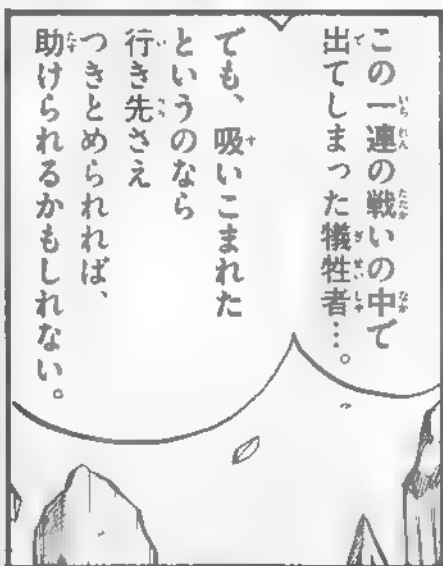 この一連の戦いの中で
出てしまった犠牲者…。
でも、吸いこまれた
というのなら
行き先さえ
つきとめられれば、
助けられるかもしれない。